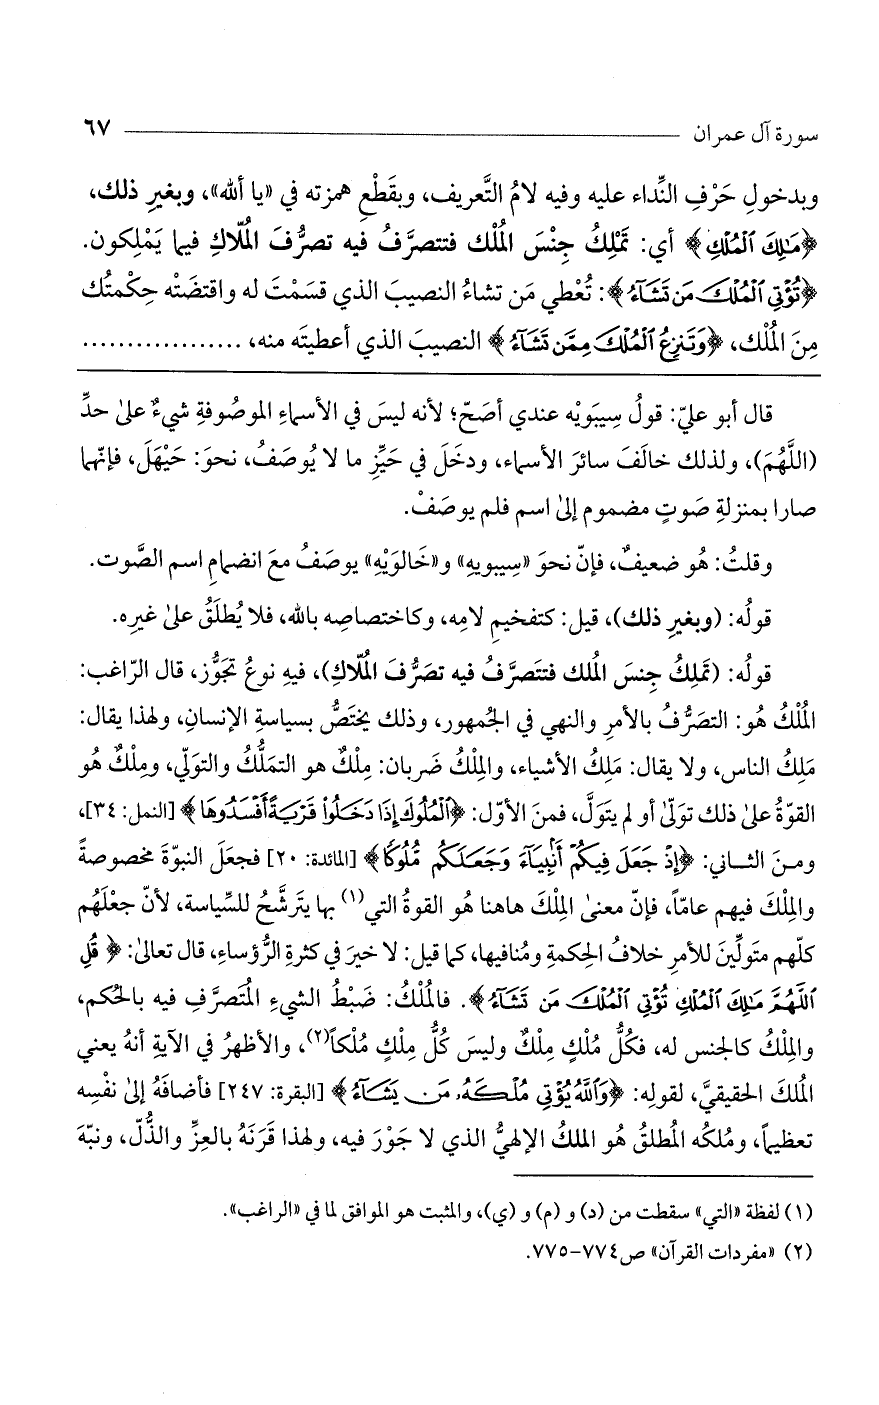 سورة آل عمران ٦٧
وبدخولِ حَرْفِ النِّداء عليه وفيه لامُ التَّعريف، وبقَطْعِ همزته في «يا ألله»، وبغيرِ ذلك،
﴿مَـٰلِكَ ٱلْمُلْكِ﴾ أي: تَمْلِكُ جِنْسَ المُلْك فتتصرَّفُ فيه تصرُّفَ المُلّاكِ فيما يَمْلِكون.
﴿تُؤْتِى ٱلْمُلْكَ مَن تَشَآءُ﴾: تُعْطي مَن تشاءُ النصيبَ الذي قسَمْتَ له واقتضَتْه حِكْمتُك
مِنَ المُلْك، ﴿وَتَنزِعُ ٱلْمُلْكَ مِمَّن تَشَآءُ﴾ النصيبَ الذي أعطيتَه منه، ..................
قال أبو عليّ: قولُ سِيبَوَيْه عندي أصَحّ؛ لأنه ليسَ في الأسماءِ الموصُوفةِ شيءٌ علىٰ حدِّ
(اللَّهُمَ)، ولذلك خالَفَ سائرَ الأسماء، ودخَلَ في حَيِّزِ ما لا يُوصَفُ، نحوَ: حَيْهَلَ، فإنّهما
صارا بمنزلةِ صَوتٍ مضموم إلىٰ اسم فلم يوصَفْ.
وقلتُ: هُو ضعيفٌ، فإنّ نحوَ «سِيبويهِ» و«خَالوَيْهِ» يوصَفُ معَ انضمامِ اسم الصَّوت.
قولُه: (وبغيرِ ذلك)، قيل: كتفخيمِ لامِه، وكاختصاصِه بالله، فلا يُطلَقُ علىٰ غيرِه.
قولُه: (تَملِكُ جِنسَ المُلك فتتصَرَّفُ فيه تصَرُّفَ المُلّاكِ)، فيهِ نوعُ تجَوُّز، قال الرّاغب:
المُلْكُ هُو: التصَرُّفُ بالأمرِ والنهي في الجُمهور، وذلك يختَصُّ بسياسةِ الإنسانِ، ولهذا يقال:
مَلِكُ الناس، ولا يقال: مَلِكُ الأشياء، والمِلْكُ ضَربان: مِلْكٌ هو التملُّكُ والتولّي، ومِلْكٌ هُو
القوّةُ علىٰ ذلك تولّىٰ أو لم يتولَّ، فمنَ الأوّل: ﴿ٱلْمُلُوكَ إِذَا دَخَلُوا۟ قَرْيَةً أَفْسَدُوهَا﴾ [النمل: ٣٤]،
ومـنَ الثـاني: ﴿إِذْ جَعَلَ فِيكُمْ أَنۢبِيَآءَ وَجَعَلَكُم مُّلُوكًا﴾ [المائدة: ٢٠] فجعَلَ النبوّةَ مخصوصةً
والمِلْكَ فيهم عامّاً، فإنّ معنىٰ المِلْكَ هاهنا هُو القوةُ التي(١) بها يترشَّحُ للسِّياسة، لأنّ جعْلَهُم
كلّهم متولِّينَ للأمرِ خلافُ الحِكمةِ ومُنافيها، كما قيل: لا خيرَ في كثرةِ الرُّؤساءِ، قال تعالىٰ: ﴿قُلِ
ٱللَّهُمَّ مَـٰلِكَ ٱلْمُلْكِ تُؤْتِى ٱلْمُلْكَ مَن تَشَآءُ﴾. فالمُلْكُ: ضَبْطُ الشيءِ المُتَصرَّفِ فيه بالحُكم،
والمِلْكُ كالجنس له، فكلُّ مُلْكٍ مِلْكٌ وليسَ كلُّ مِلْكٍ مُلْكاً(٢)، والأظهرُ في الآيةِ أنهُ يعني
المُلكَ الحقيقيَّ، لقولِه: ﴿وَٱللَّهُ يُؤْتِى مُلْكَهُۥ مَن يَشَآءُ﴾ [البقرة: ٢٤٧] فأضافَهُ إلىٰ نفْسِه
تعظيماً، ومُلكُه المُطلقُ هُو الملكُ الإلهيُّ الذي لا جَوْرَ فيه، ولهذا قَرَنَهُ بالعِزِّ والذُّلّ، ونبّهَ
(١) لفظة «التي» سقطت من (د) و (م) و (ي)، والمثبت هو الموافق لما في «الراغب».
(٢) «مفردات القرآن» ص٧٧٤-٧٧٥.